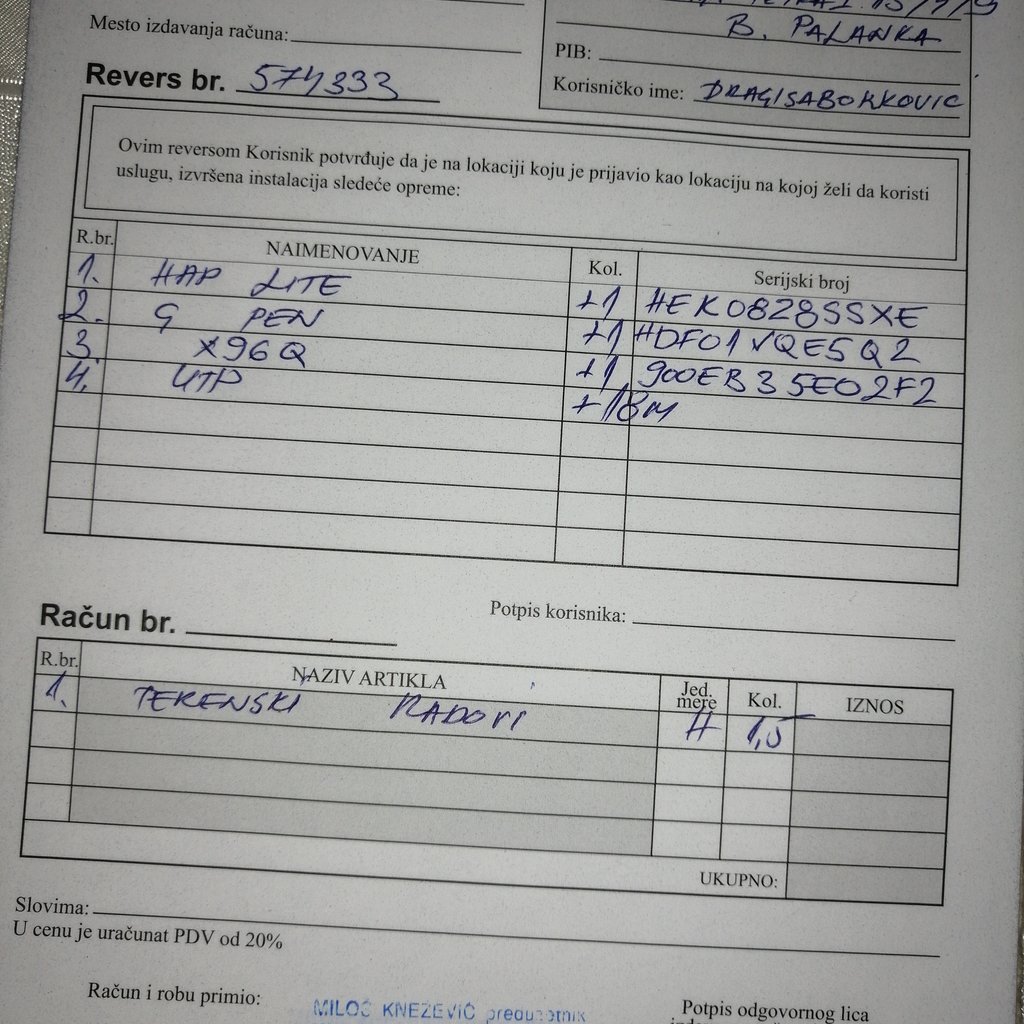 B. PALANKA
Mesto izdavanja računa:
PIB:
Revers br. 574333
Korisničko ime: DRAGISABORKOVIC
Ovim reversom Korisnik potvrđuje da je na lokaciji koju je prijavio kao lokaciju na kojoj želi da koristi
uslugu, izvršena instalacija sledeće opreme:
R.br. NAIMENOVANJE Kol. Serijski broj
1. HAP LITE +1 HEK0828SSXE
2. G PEN +1 HDF01VQE5Q2
3. X96Q +1 900EB35E02F2
4. UTP +18m
Potpis korisnika:
Račun br.
R.br. NAZIV ARTIKLA Jed. mere Kol. IZNOS
1. TERENSKI RADOVI H 1,5
UKUPNO:
Slovima:
U cenu je uračunat PDV od 20%
Račun i robu primio:
MILOŠ KNEŽEVIĆ preduzetnik
Potpis odgovornog lica